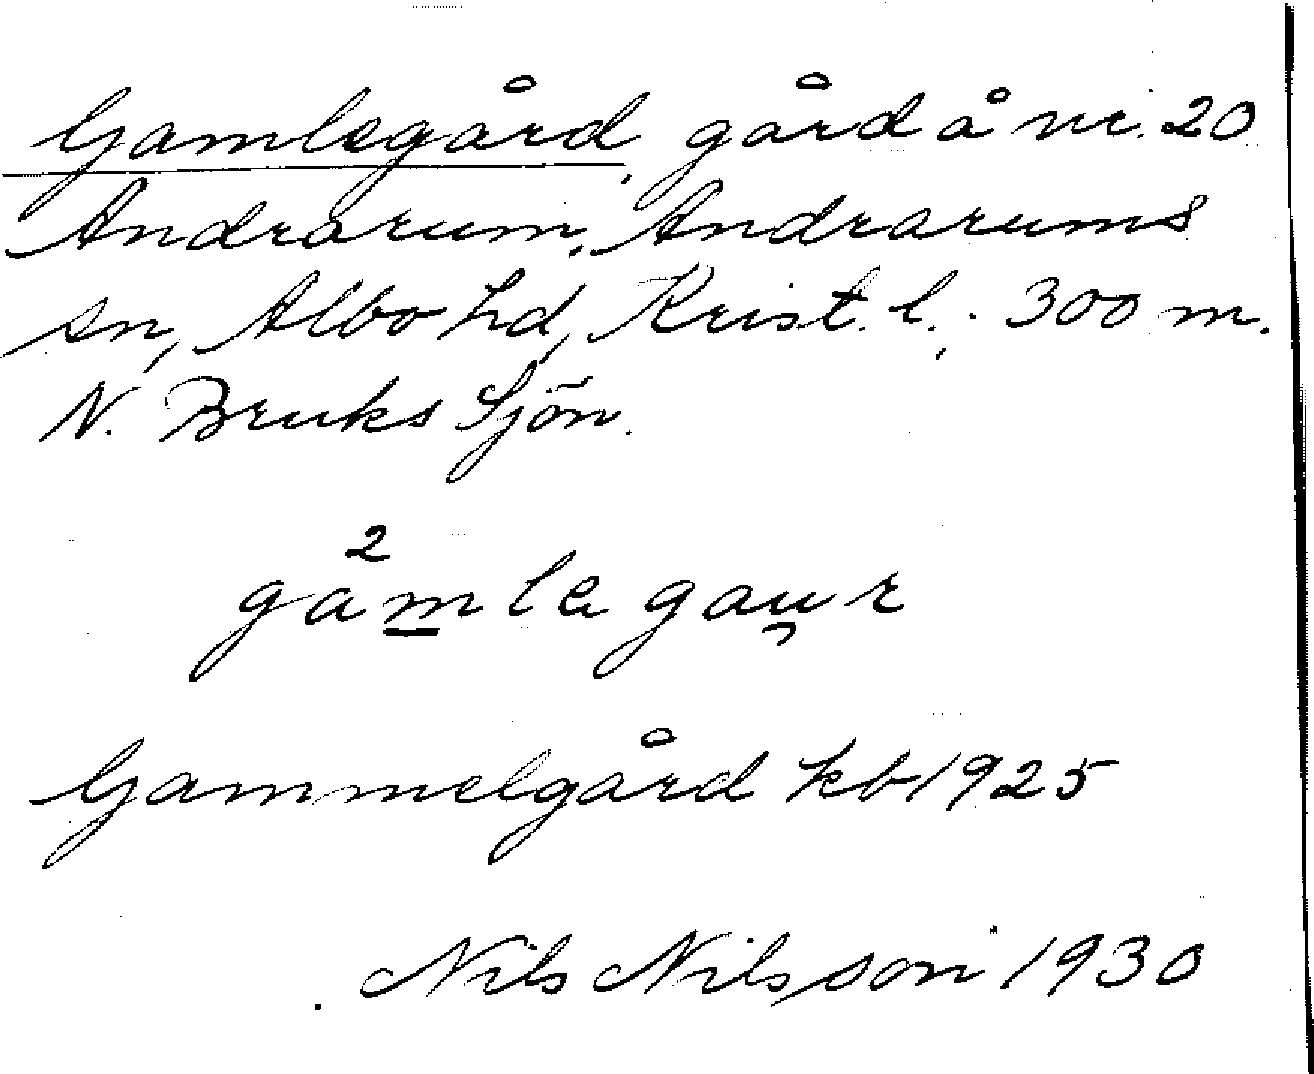 Gamlegård, gård å nr. 20
Andrarum, Andrarums
sn, Albo hd, Krist. l., 300 m.
N. Bruks Sjön.
2
gamla gau̯r
Gammelgård kb 1925
Nils Nilsson 1930